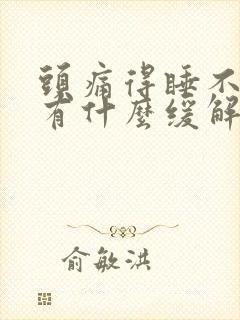 頭痛得睡不
有什麼緩解
俞敏洪